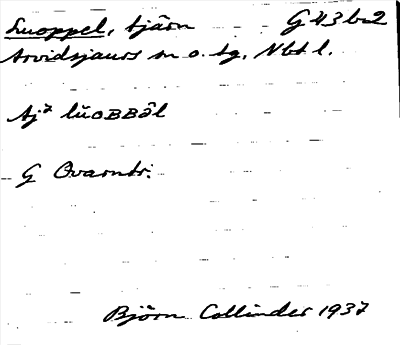 Luoppel, tjärn G 43 b 2
Arvidsjaurs sn o. tg, Nbt l.
Aj² lŭoBBȏl
G Ovarntr.
Björn Collinder 1937